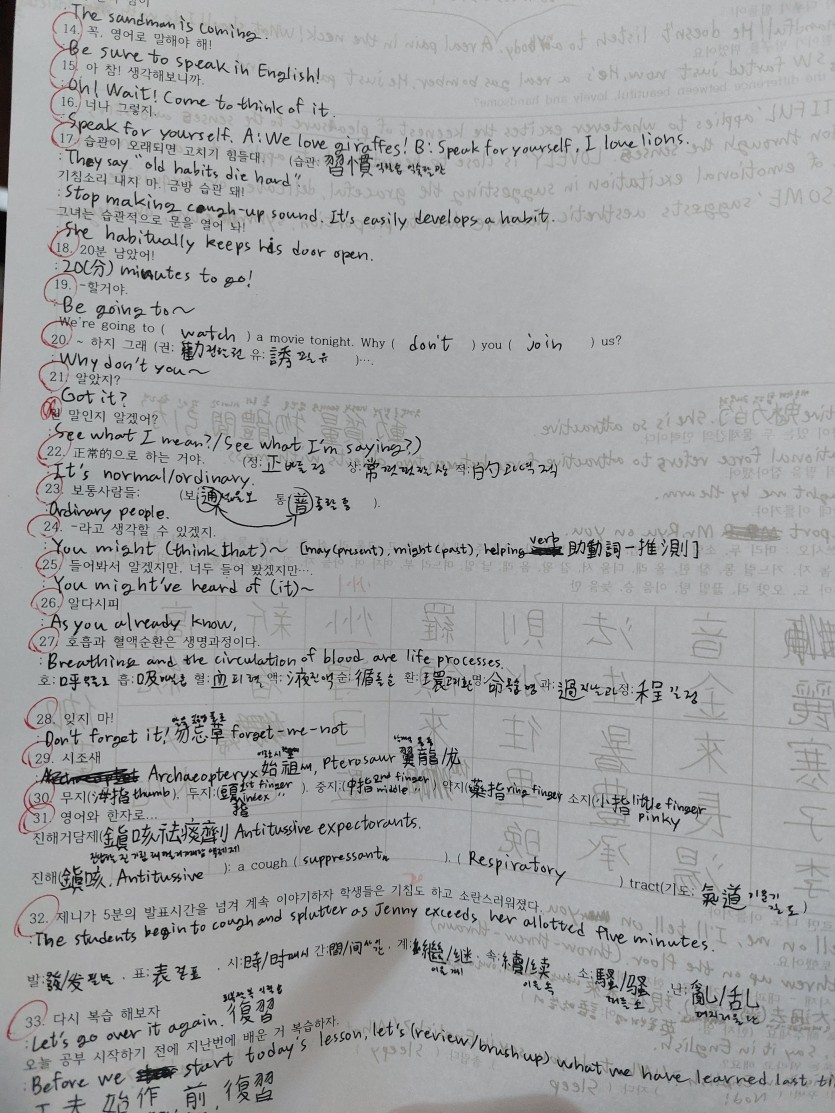 : The sandman is coming.
14. 꼭, 영어로 말해야 해!
: Be sure to speak in English!
15. 아 참! 생각해보니까.
: Oh! Wait! Come to think of it.
16. 너나 그렇지.
: Speak for yourself. A: We love giraffes! B: Speak for yourself, I love lions.
17. 습관이 오래되면 고치기 힘들다. (습관: 習慣
: They say "old habits die hard"
기침소리 내지 마. 금방 습관 돼!
: Stop making cough-up sound. It's easily develops a habit.
그녀는 습관적으로 문을 열어 놔!
: She habitually keeps his door open.
18. 20분 남았어!
: 20(分) minutes to go!
19. -할거야.
: Be going to ~
We're going to ( watch ) a movie tonight. Why ( don't ) you ( join ) us?
20. ~ 하지 그래 (권: 勸 권할 권 유: 誘 꾀일 유 )….
: Why don't you ~
21. 알았지?
: Got it?
뭔 말인지 알겠어?
: See what I mean?/See what I'm saying?)
22. 正常的으로 하는 거야. (정: 正 바를 정 상: 常 상 적: 的 과녁 적
: It's normal/ordinary.
23. 보통사람들: (보 通 통 普 ).
: Ordinary people.
24. -라고 생각할 수 있겠지.
: You might (think that) ~ [may(present), might(past), helping verb 助動詞 - 推測]
25. 들어봐서 알겠지만, 너두 들어 봤겠지만…
: You might've heard of (it) ~
26. 알다시피
: As you already know,
27. 호흡과 혈액순환은 생명과정이다.
: Breathing and the circulation of blood are life processes.
호: 呼 흡: 吸 혈: 血 피 혈 액: 液 진액 순: 循 돌 순 환: 環 명: 命 목숨 명 과: 過 지날 과 정: 程 길 정
28. 잊지 마!
: Don't forget it! 勿忘草 forget-me-not
29. 시조새
: Archaeopteryx 始祖새, pterosaur 翼龍/龙
30. 무지(拇指 thumb). 두지:(頭指 1st finger index "). 중지:(中指 2nd finger middle "). 약지(藥指 ring finger 소지(小指 little finger pinky
31. 영어와 한자로…
진해거담제(鎭咳祛痰劑) Antitussive expectorants.
진해(鎭咳. Antitussive ): a cough ( suppressant ). ( Respiratory ) tract(기도: 氣道
32. 제니가 5분의 발표시간을 넘겨 계속 이야기하자 학생들은 기침도 하고 소란스러워졌다.
: The students begin to cough and splutter as Jenny exceeds her allotted five minutes.
발: 發/发 필 발. 표: 表 겉 표. 시: 時/时 때 시 간: 間/间 사이 간. 계: 繼/继 이을 계. 속: 續/续 이을 속 소: 騷/骚 떠들 소. 난: 亂/乱 어지러울 난
33. 다시 복습 해보자
: Let's go over it again. 復習
오늘 공부 시작하기 전에 지난번에 배운 거 복습하자.
: Before we start today's lesson, let's (review/brush up) what we have learned last
工夫 始作 前 復習